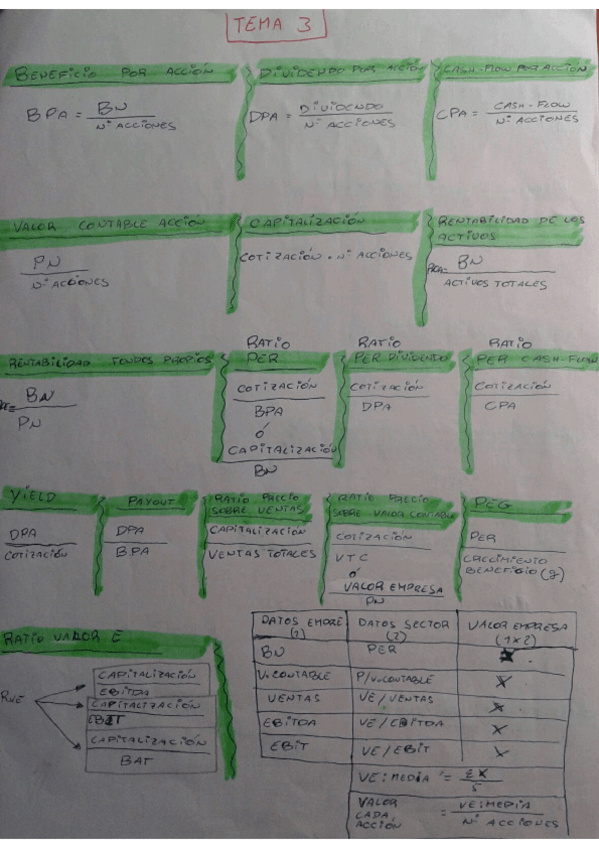 TEMA 3
BENEFICIO POR ACCIÓN
BPA = BN / Nº ACCIONES
DIVIDENDO POR ACCIÓN
DPA = DIVIDENDO / Nº ACCIONES
CASH-FLOW POR ACCIÓN
CPA = CASH-FLOW / Nº ACCIONES
VALOR CONTABLE ACCIÓN
PN / Nº ACCIONES
CAPITALIZACIÓN
COTIZACIÓN · Nº ACCIONES
RENTABILIDAD DE LOS
ACTIVOS
BN / ACTIVOS TOTALES
RENTABILIDAD FONDOS PROPIOS
BN / PN
RATIO
PER
COTIZACIÓN / BPA
Ó
CAPITALIZACIÓN / BN
RATIO
PER DIVIDENDO
COTIZACIÓN / DPA
RATIO
PER CASH-FLOW
COTIZACIÓN / CPA
YIELD
DPA / COTIZACIÓN
PAYOUT
DPA / BPA
RATIO PRECIO
SOBRE VENTAS
CAPITALIZACIÓN / VENTAS TOTALES
RATIO PRECIO
SOBRE VALOR CONTABLE
COTIZACIÓN / VTC
Ó
VALOR EMPRESA / PN
PEG
PER / CRECIMIENTO
BENEFICIO (g)
RATIO VALOR E
RVE
CAPITALIZACIÓN / EBITDA
CAPITALIZACIÓN / EBIT
CAPITALIZACIÓN / BAT
DATOS EMPRE (1) DATOS SECTOR (2) VALOR EMPRESA (1x2)
BN PER X
V.CONTABLE P/V.CONTABLE X
VENTAS VE/VENTAS X
EBITDA VE/EBITDA X
EBIT VE/EBIT X
VE: MEDIA = ΣX / 5
VALOR CADA ACCIÓN = VE:MEDIA / Nº ACCIONES